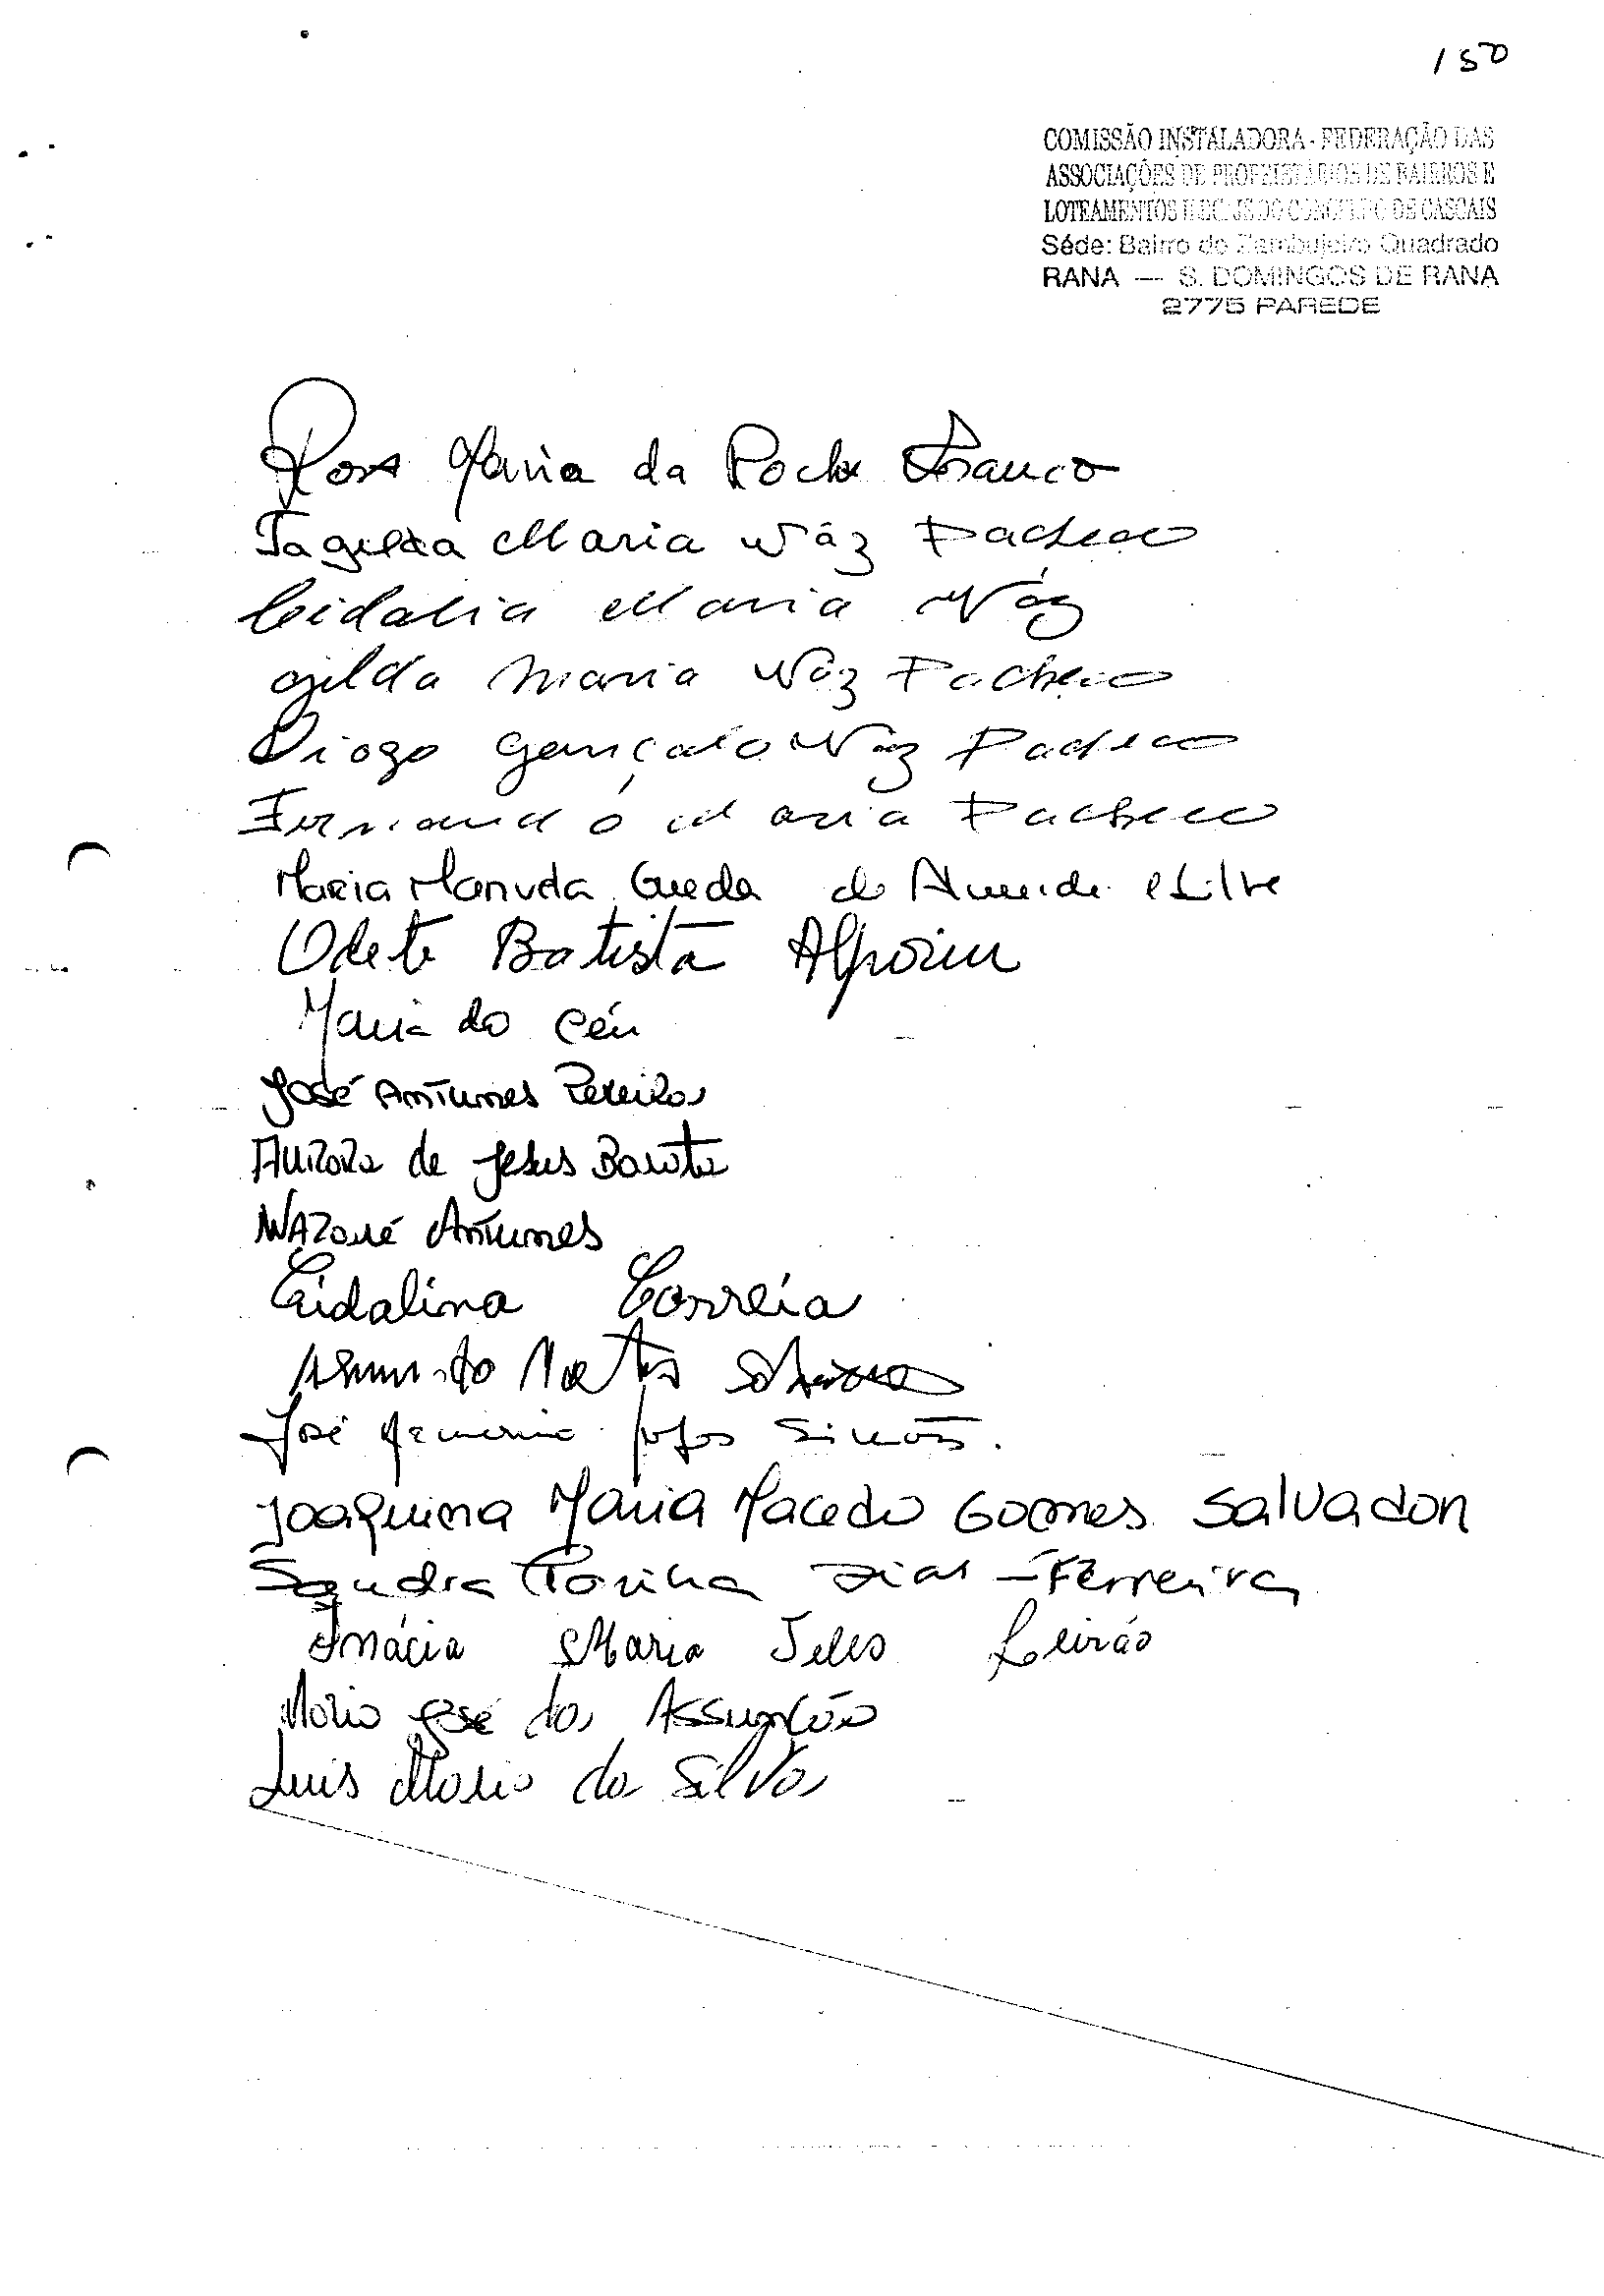 150
COMISSÃO INSTALADORA - FEDERAÇÃO DAS
ASSOCIAÇÕES DE PROPRIETÁRIOS DE BAIRROS E
LOTEAMENTOS ILEGAIS DO CONCELHO DE CASCAIS
Séde: Bairro do Zambujeiro Quadrado
RANA — S. DOMINGOS DE RANA
2775 PAREDE
Rosa Maria da Rocha Franco
Maria Váz Pacheco
Cidalia Maria Váz
Gilda Maria Váz Pacheco
Diogo Gonçalo Váz Pacheco
Fernando Maria Pacheco
Maria Manuela Gueda de Almeida e Silva
Odete Batista Alpoim
Maria do Céu
José Antunes Pereira
Aurora de Jesus Barata
Nazaré Antunes
Cidalina Correia
Matos
José Simões.
Joaquina Maria Macedo Gomes Salvador
Sandra Dias Ferreira
Inácia Maria Teles Leirão
José da Assunção
Luis Mario da Silva